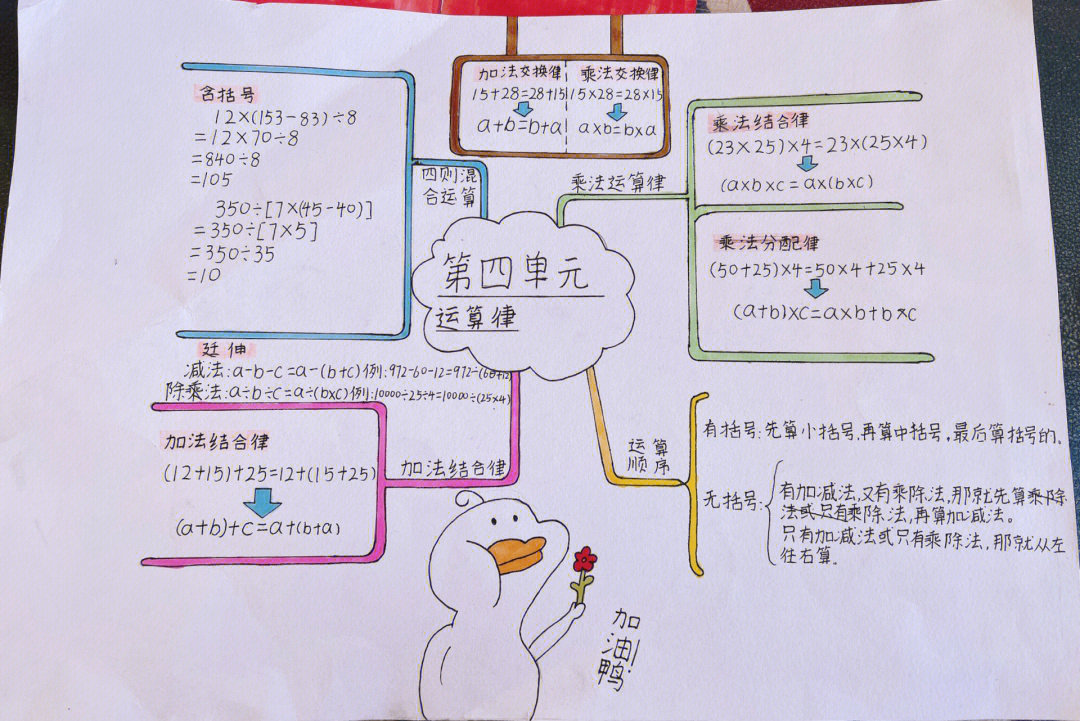 加法交换律
15+28=28+15
a+b=b+a
乘法交换律
15×28=28×15
a×b=b×a
含括号
12×(153-83)÷8
=12×70÷8
=840÷8
=105
350÷[7×(45-40)]
=350÷[7×5]
=350÷35
=10
四则混
合运算
乘法运算律
乘法结合律
(23×25)×4=23×(25×4)
(a×b×c=a×(b×c)
乘法分配律
(50+25)×4=50×4+25×4
(a+b)×c=a×b+b×c
第四单元
运算律
延伸
减法:a-b-c=a-(b+c)例:972-60-12=972-(60+12)
除乘法:a÷b÷c=a÷(b×c)例:10000÷25÷4=10000÷(25×4)
加法结合律
(12+15)+25=12+(15+25)
(a+b)+c=a+(b+a)
加法结合律
运算
顺序
有括号:先算小括号,再算中括号,最后算括号的。
无括号:
有加减法,又有乘除法,那就先算乘除
法或只有乘除法,再算加减法。
只有加减法或只有乘除法,那就从左
往右算。
加
油!
鸭